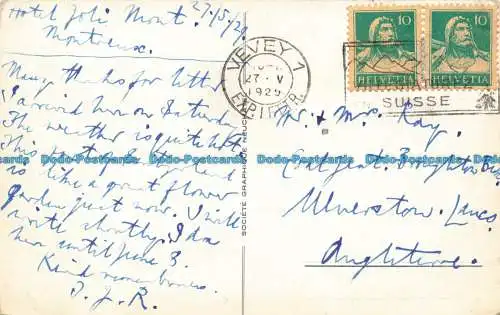 Hotel Joli Mont. 27/5/29.
Montreux.
Many thanks for letter
I arrived here on Saturday
The weather is quite hot
This part of
is like a great flower
garden just now. I will
write shortly. I
here until June 3.
Kind remembrances.
J. J. R.
SOCIÉTÉ GRAPHIQUE
VEVEY 1
27. V
1929
10 10
HELVETIA HELVETIA
SUISSE
Mr. & Mrs. Kay.
Ulverston, Lancs,
Angleterre.
Dodo-Postcards Dodo-Postcards Dodo-Postcards Dodo-Postcards